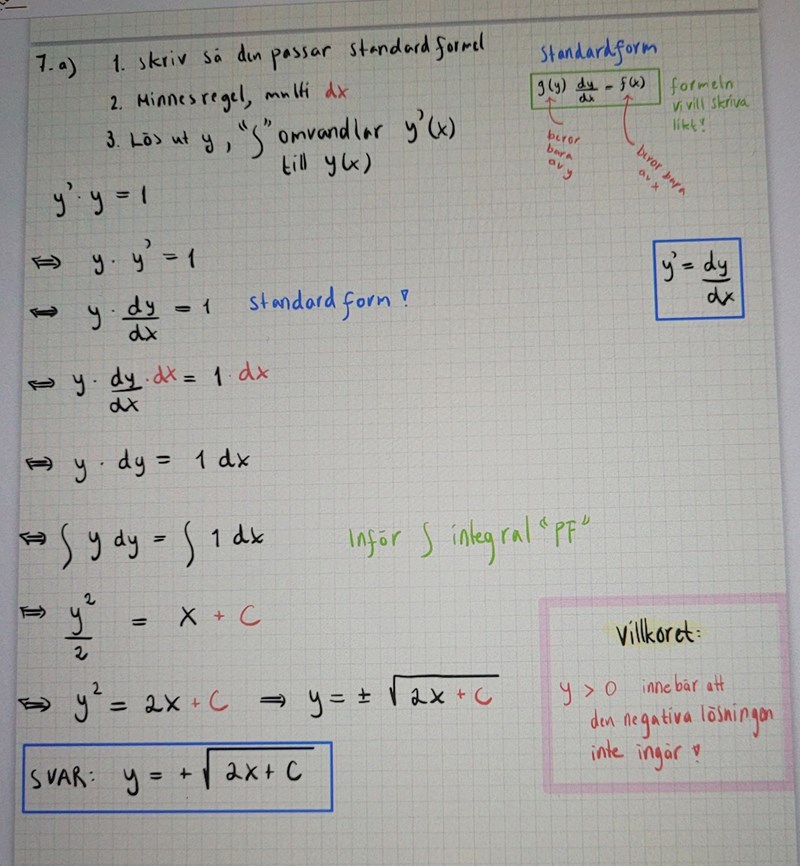 7.a) 1. Skriv så den passar standardformel
2. Minnesregel, multi dx
3. Lös ut y, "∫" omvandlar y'(x)
till y(x)
Standardform
g(y) dy/dx = f(x)
formeln
vi vill skriva
likt!
beror
bara
av y
beror bara
av x
y' · y = 1
⇔ y · y' = 1
y' = dy/dx
⇔ y · dy/dx = 1 Standardform!
⇔ y · dy/dx · dx = 1 · dx
⇔ y · dy = 1 dx
⇔ ∫ y dy = ∫ 1 dx Inför ∫ integral "PF"
⇔ y²/2 = x + C
⇔ y² = 2x + C ⇒ y = ± √(2x + C)
SVAR: y = + √(2x + C)
Villkoret:
y > 0 innebär att
den negativa lösningen
inte ingår!